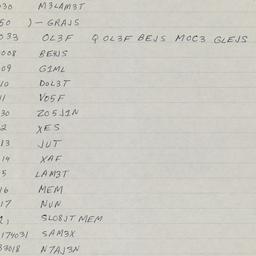 030 M3LAM3T
50 ) — GRAJS
033 OL3F Q OL3F BEJS MOC3 GLEJS
008 BEHJS
09 G1ML
10 DOL3T
11 VO5F
30 ZO5J1N
2 XES
13 JUT
14 XAF
5 LAM3T
16 MEM
17 NUN
21 SLO8JT MEM
174031 SAM3X
37018 N7AJ3N